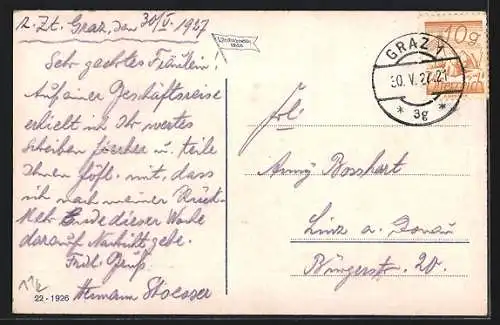 z. Zt. Graz, den 30/V. 1927
Sehr geehrtes Fräulein!
Auf einer Geschäftsreise
erhielt ich Ihr wertes
Schreiben hierher u. teile
Ihnen höfl. mit, dass
ich nach meiner Rück-
kehr Ende dieser Woche
darauf Nachricht gebe.
Frdl. Gruß
Hermann Stoesser
22-1926
GRAZ 1
30. V. 27. 21
* 3g *
10 g
Österreich
Frl.
Anny Bosshart
Linz a. Donau
Bürgerstr. 20.